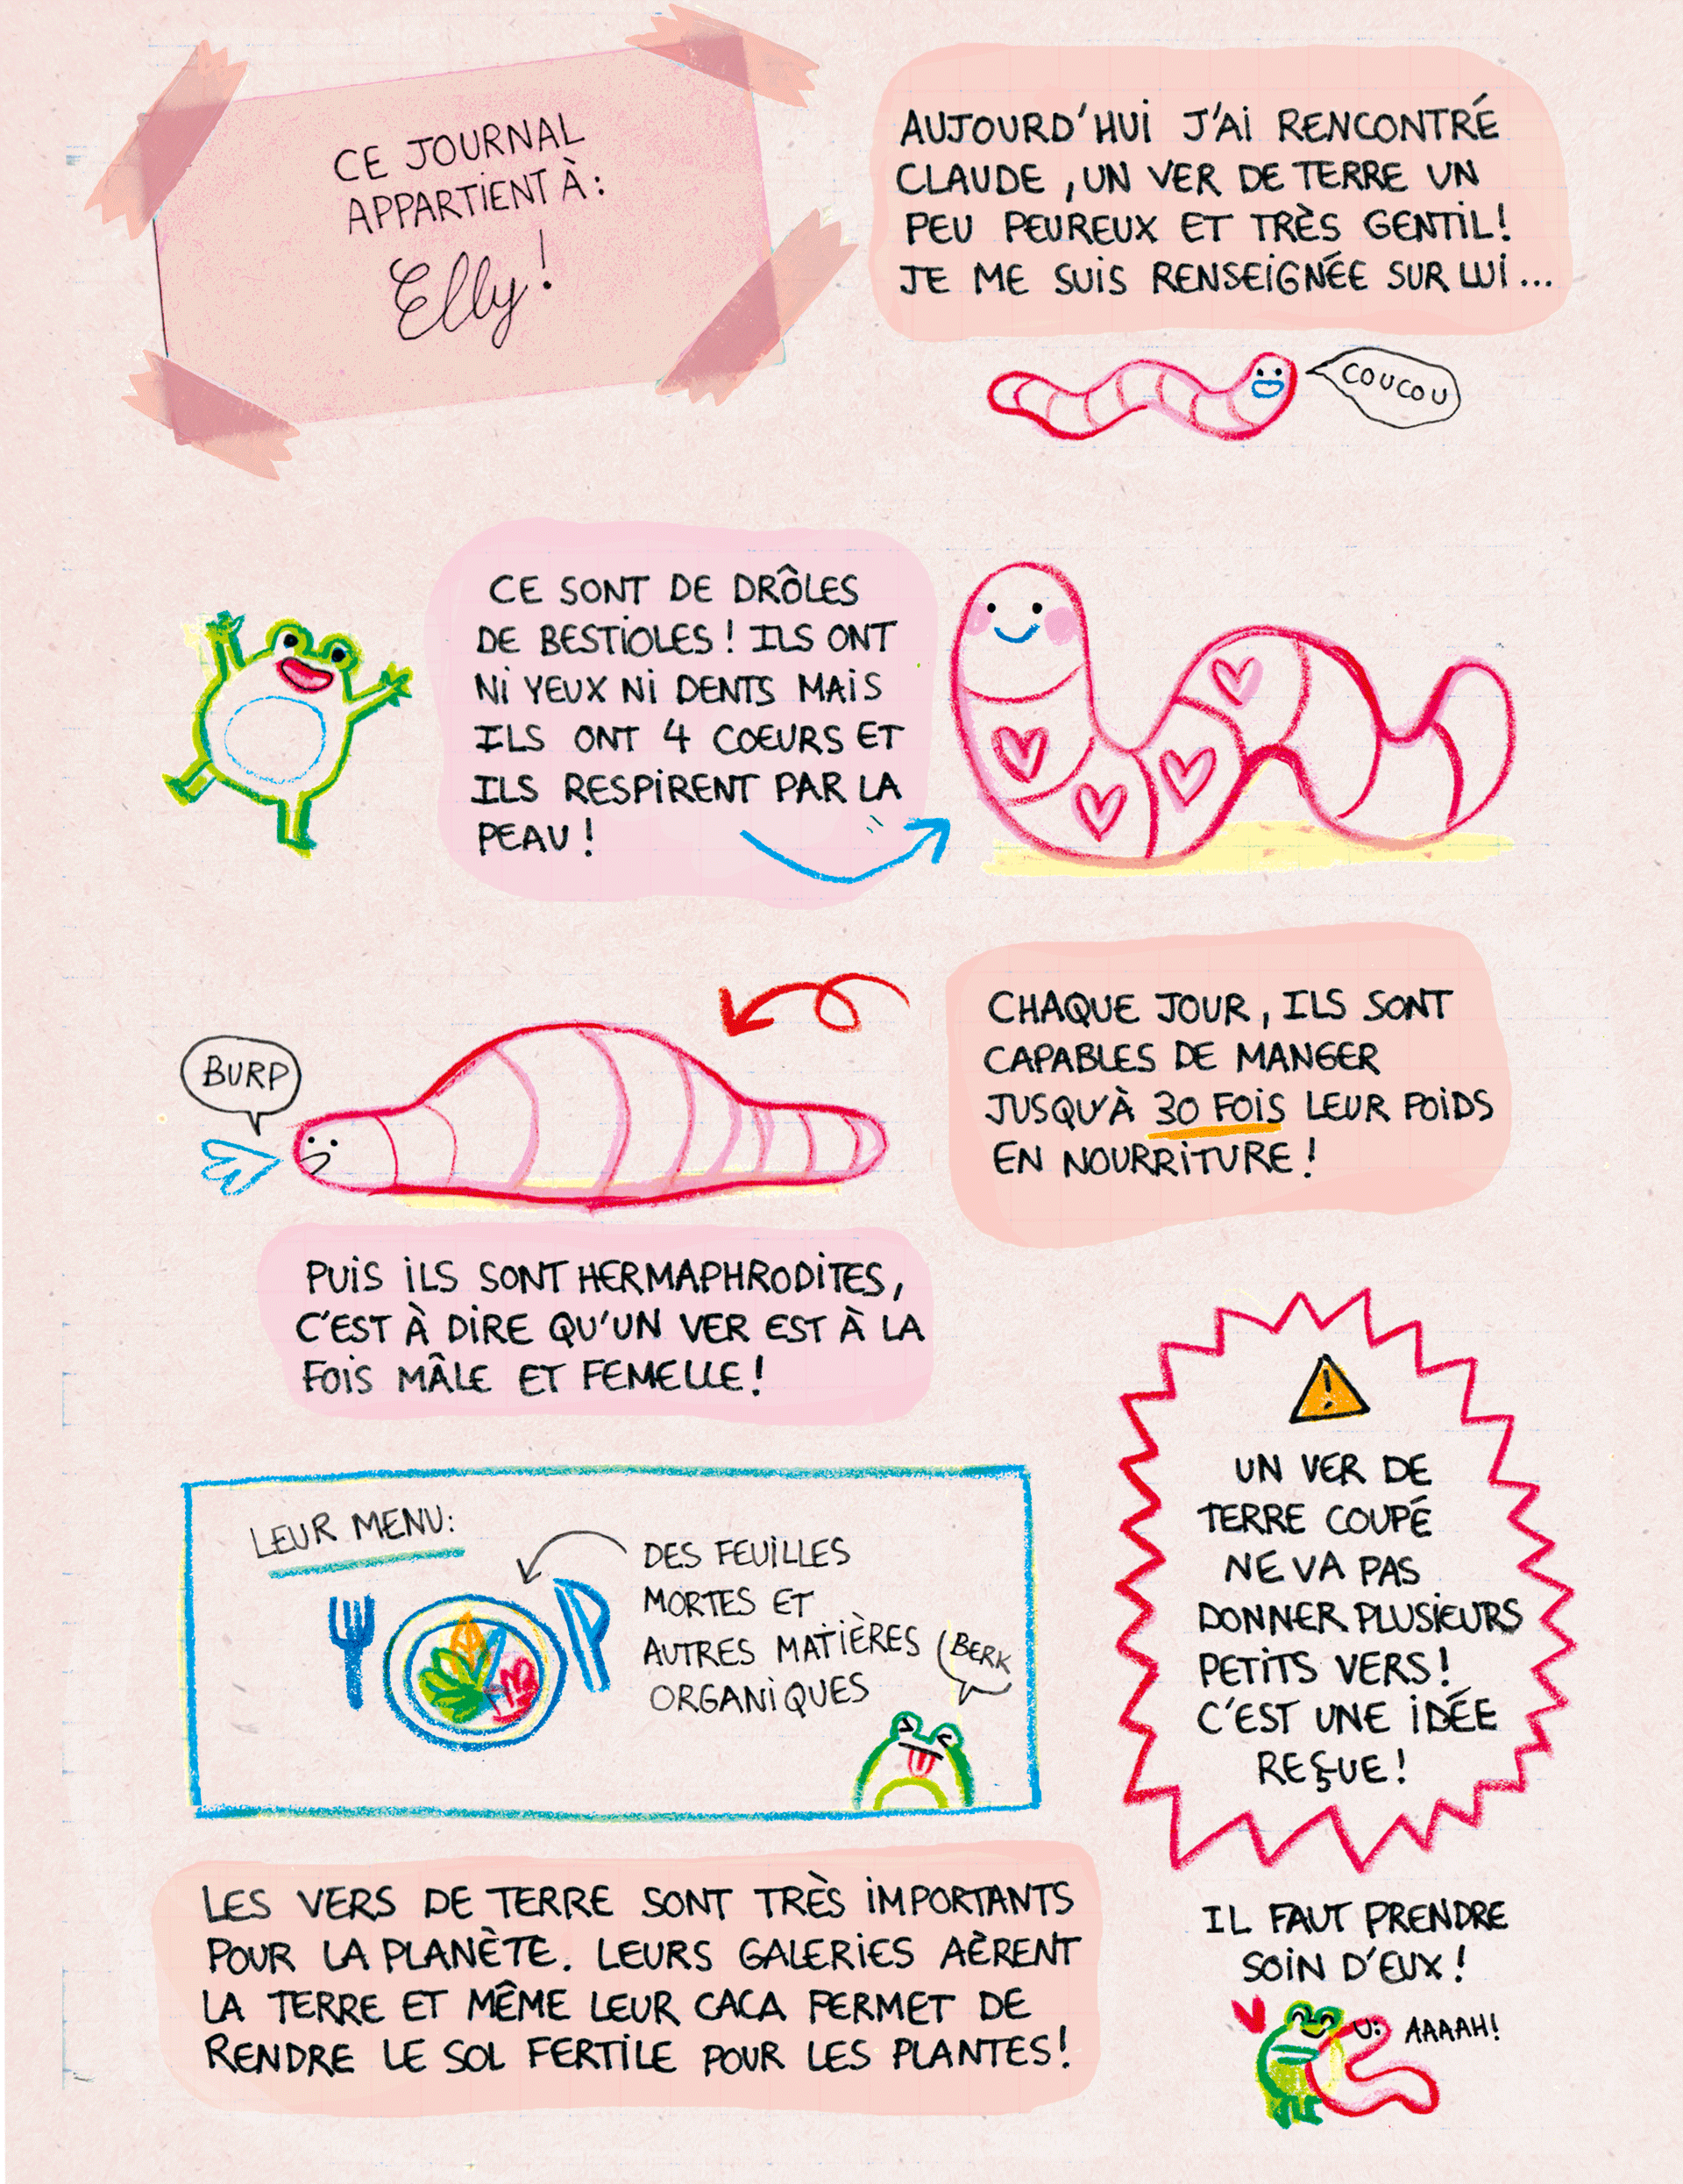 CE JOURNAL
APPARTIENT À :
Elly !
AUJOURD'HUI J'AI RENCONTRÉ
CLAUDE, UN VER DE TERRE UN
PEU PEUREUX ET TRÈS GENTIL !
JE ME SUIS RENSEIGNÉE SUR LUI...
COUCOU
CE SONT DE DRÔLES
DE BESTIOLES ! ILS ONT
NI YEUX NI DENTS MAIS
ILS ONT 4 COEURS ET
ILS RESPIRENT PAR LA
PEAU !
CHAQUE JOUR, ILS SONT
CAPABLES DE MANGER
JUSQU'À 30 FOIS LEUR POIDS
EN NOURRITURE !
BURP
PUIS ILS SONT HERMAPHRODITES,
C'EST À DIRE QU'UN VER EST À LA
FOIS MÂLE ET FEMELLE !
!
UN VER DE
TERRE COUPÉ
NE VA PAS
DONNER PLUSIEURS
PETITS VERS !
C'EST UNE IDÉE
REÇUE !
LEUR MENU :
DES FEUILLES
MORTES ET
AUTRES MATIÈRES
ORGANIQUES
BERK
LES VERS DE TERRE SONT TRÈS IMPORTANTS
POUR LA PLANÈTE. LEURS GALERIES AÈRENT
LA TERRE ET MÊME LEUR CACA PERMET DE
RENDRE LE SOL FERTILE POUR LES PLANTES !
IL FAUT PRENDRE
SOIN D'EUX !
AAAAH!